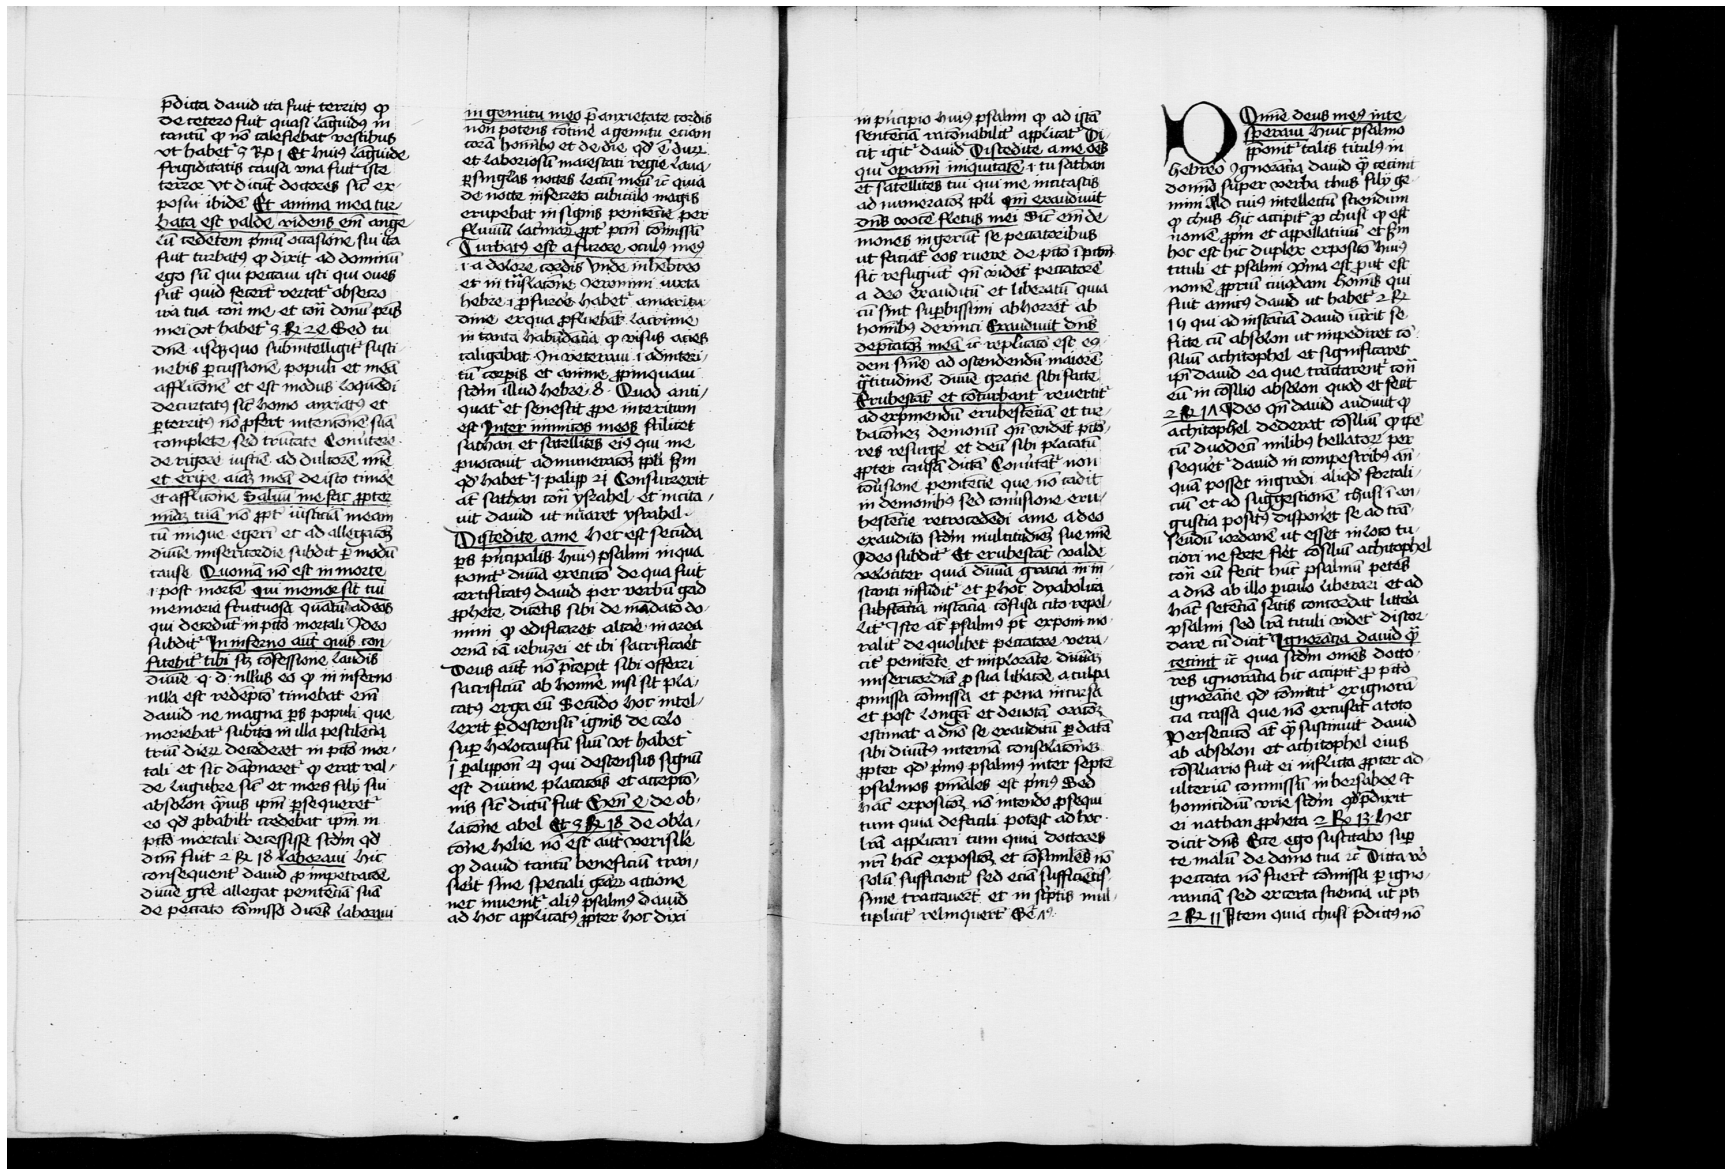 p̄dicta dauid ita fuit territꝰ ꝙ
de cetero fuit quasi lāguidꝰ in
tantū ꝙ nō calefiebat᷑ vestibus
vt habet᷑ 3 R͛ 1 Et huiꝰ lāguide
frigiditatis causa vna fuit iste
terror vt dicūt doctores sic̄ ex-
posui ibidē Et anima mea tur
bata est valde videns em̄ ange
lū cedētem pͥmū occasione sui ita
fuit turbatꝰ ꝙ dixit ad dominū
ego sū qui peccaui isti qui oues
sūt quid fecerūt vertat᷑ obsecro
ira tua cont᷑ me et cont᷑ domū pr̄is
mei vt habet᷑ 2 R͛ 24 Sed tu
dn̄e usq̨quo subintelligit᷑ susti-
nebis ꝑcussionē populi et meā
afflictōnē et est modus loquēdi
decurtatꝰ sic̄ homo anxiatꝰ et
ꝑterritꝰ nō ꝓfert intentōnē suā
complete sed trūcate Conūtere
de rigore iustitie ad dulcorē mīe
et eripe aīaz meā de isto timōe
et afflictōne Saluū me fac ꝓpter
mīaz tuā nō ꝓpt᷑ iusticiā meam
cū inique egerī et ad allegatōꝫ
diuīe misericordie subdit ꝑ modū
cause Quoniā nō est in morte
.i. post mortē qui memor sit tui
memoria fructuosa quātū ad eos
qui decedūt in pctō mortali Ideo
subdit᷑ In inferno aut̄ quis con
fitebit᷑ tibi scꝫ cōfessione laudis
diuīe q. d. nullus eo ꝙ in inferno
nulla est redēptō timebat em̄
dauid ne magna ꝑs populi que
moriebat᷑ subito in illa pestilēcia
triū dierꝝ decederet in pctō mor-
tali et sic dāpnaret᷑ ꝙ erat val-
de lugubre sic̄ et mors filij sui
absolon qͣuis ip̄m ꝑsequeret᷑
eo qd̓ ꝓbabilit᷑ credebat ip̄m in
pctō mortali decessisse scd̓m qd̓
dictū fuit 2 R͛ 18 Laboraui hic
consequent᷑ dauid ꝓ impetracōe
diuīe grē allegat penitēciā suā
de peccato cōmisso dicēs laboraui
in gemitu meo p̄ anxietate cordis
non potens cōtinē a gemitu eciam
corā hom̄ibꝰ et de die qd̓ ē durꝝ
et laboriosū maiestati regie laua
ꝑ singl̓as noctes lectū meū ⁊c̄ quia
de nocte in secreto cubiculo magis
erupebat in signis penitēcie per
fluuiū lacrimaꝝ ꝓpt᷑ pctm̄ cōmissū
Turbatꝰ est a furore oculꝰ meꝰ
.i. a dolore cordis Vnde in hebreo
et in trāslacōne Jeronimi iuxta
hebre .i. ꝓ furore habet᷑ amaritu
dine ex qua ꝓfluebāt lacrime
in tanta habūdācia ꝙ visus acies
caligabat In veteraui .i. ad interi-
tū corpis et anime ꝓpinquaui
scd̓m illud hebre. 8. Quod anti-
quat᷑ et senescit ꝓpe interitum
est Inter inimicos meos scilicet
sathan et satellites eiꝰ qui me
ꝓuocauit ad numeratōꝫ ppl̓i scd̓m
qd̓ habet᷑ 1 palipp 21 Consurrexit
at̄ sathan cont᷑ ysrahel et incita-
uit dauid ut nūaret ysrahel.
Discedite a me Hec est secūda
ꝑs pͥncipalis huiꝰ psalmi in qua
ponit᷑ diuīa exaudito de qua fuit
certificatꝰ dauid per verbū gad
ꝓphete dicētis sibi de mādato do-
mini ꝙ edificaret altare in area
ornā rā iebuzei et ibi sacrificaret
Deus aut̄ nō p̄cepit sibi offerri
sacrificiū ab homīe nisi sit pla-
catꝰ erga eū Secūdo hoc intel-
lexit ꝑ descensū ignis de celo
suꝑ holocaustū suū vt habet᷑
1 ꝑalippon̄ 21 qui descensus signū
est diuine placatōis et acceptō-
nis sic̄ dictū fuit Gen̄ 4 de ob-
latōne abel Et 3 R͛ 18 de obla-
tōne helie nō est aut̄ verisil̓e
ꝙ dauid tantū beneficiū tran-
sierit sine speciali graꝝ actione
nec inuenit᷑ aliꝰ psalmꝰ dauid
ad hoc applicatꝰ ꝓpter hoc dixi
in pͥncipio huiꝰ psalmi ꝙ ad istā
sentenciā racōnabilit᷑ applicat᷑ Di-
cit igit᷑ dauid Discedite a me oēs
qui opamī iniquitatē .i. tu sathan
et satellites tui qui me incitastis
ad numeratōꝫ ppl̓i Qm̄ exaudiuit
dn̄s vocē fletus mei Sic em̄ de
mones ingerūt se peccatoribus
ut faciāt eos ruere de pctō ī pctm̄
sic refugiūt qn̄ vidēt peccatorē
a deo exauditū et liberatū quia
cū sint suꝑbissimi abhorrēt ab
hom̄ibꝰ deuinci Exaudiuit dn̄s
dep̄catōꝫ meā ⁊c̄ replicatō est eiꝰ
dem sniē ad ostendendū maiorē
gͣtitudinē diuīe gracie sibi facte
Erubescāt et cōturbant᷑ reuertit᷑
ad exprimendū erubescēciā et tur
batōneꝫ demonū qn̄ vidēt pctō-
res resurgē et deū sibi placatū
ꝓpter causā dictā Conūtāt᷑ non
cōuersione penitēcie que nō cadit
in demoībꝰ sed cōuersione eru-
bescēcie retrocedēdi a me a deo
exaudito scd̓m multitudieꝫ sue mīe
Ideo subdit᷑ Et erubescāt valde
velociter quia diuīa gracia in in-
stanti infūdit᷑ et ꝑ hoc dyabolica
substācia instācia cōfusa cito repel-
lit᷑ Iste at̄ psalmꝰ pt̄ exponi mo-
ralit᷑ de quolibet peccatore vera-
cit᷑ penitēte et implorāte diuināꝫ
misericordiā ꝓ sua libatōe a culpa
pͥmissa cōmissa et pena incursa
et post longā et deuotā oratōꝫ
estimat a dn̄o se exauditū ꝑ datā
sibi diuitꝰ internā consolatōneꝫ
ꝓpter qd̓ pͥmꝰ psalmꝰ inter septē
psalmos pn̄iales est pͥmꝰ Sed
hāc expositōꝫ nō intendo ꝓsequi
tum quia de facili potest ad hoc
lrā applicari tum quia doctores
nr̄i hāc expositōꝫ et cōsimiles nō
solū sufficient᷑ sed eciā sufficiētis-
sime tractauerūt et in sc̓ptis mul-
tiplicit᷑ relinquerūt
Domine deus meꝰ in te
speraui huic psalmo
p̄ponit᷑ talis titulꝰ in
hebreo Ignorācia dauid qͣ cecinit
domīo super verba chus filij ge-
mini Ad cuiꝰ intellectū sciendum
ꝙ chus hic accipit᷑ ꝓ chusi ꝙ est
nomē ꝓpm̄ et appellatiuū et scd̓m
hoc est hic duplex expositō huiꝰ
tituli et psalmi Vna est prout est
nomē ꝓpriū cuiꝰdam homīs qui
fuit amicꝰ dauid ut habet᷑ 2 R͛
15 qui ad instāciam dauid iūxit se
ficte cū absolon ut impediret cō-
siliū achitophel et significaret
ip̄i dauid ea que tractarent᷑ cont᷑
eū in cōsilio absolon quod et fecit
2 R͛ 17 Ideo qn̄ dauid audiuit ꝙ
achitophel dederat cōsiliū ꝙ ip̄e
cū duodecī milibꝰ bellatorꝝ per
sequēt᷑ dauid in campestribꝰ an-
quā posset ingredi aliqd̓ fortali-
ciū et ad suggestionē chusi ī an-
gustia positꝰ disponēt se ad trā-
seūdū iordanē ut esset in loco tu-
ciori ne forte fiēt cōsiliū achitophel
cont᷑ eū fecit hūc psalmū petēs
a dn̄o ab illo ꝑiculo liberari et ad
hāc sētēciā satis concordat littera
psalmi sed lrā tituli videt᷑ discor-
dare cū dicit᷑ Ignorācia dauid qͣ
cecinit ⁊c̄ quia scd̓m omēs docto-
res ignorācia hic accipit᷑ ꝓ pctō
ignorācie qd̓ cōmittit᷑ ex ignorā
cia crassa que nō excusat a toto
Persecutō at̄ qͣ sustinuit dauid
ab absolon et achitophel eius
cōsiliario fuit ei inflicta ꝓpter ad-
ulteriū commissū in bersabee ⁊
homicidiū vrie scd̓m qd̓ p̄dixit
ei nathan ꝓpheta 2 R͛ 13 hec
dicit dn̄s Ecce ego suscitabo suꝑ
te malū de domo tua ⁊c̄ Dicta vō
peccata nō fuerūt cōmissa ꝑ igno-
ranciā sed ex certa sciencia ut ptꝫ
2 R͛ 11 Item quia chusi p̄dictꝰ nō